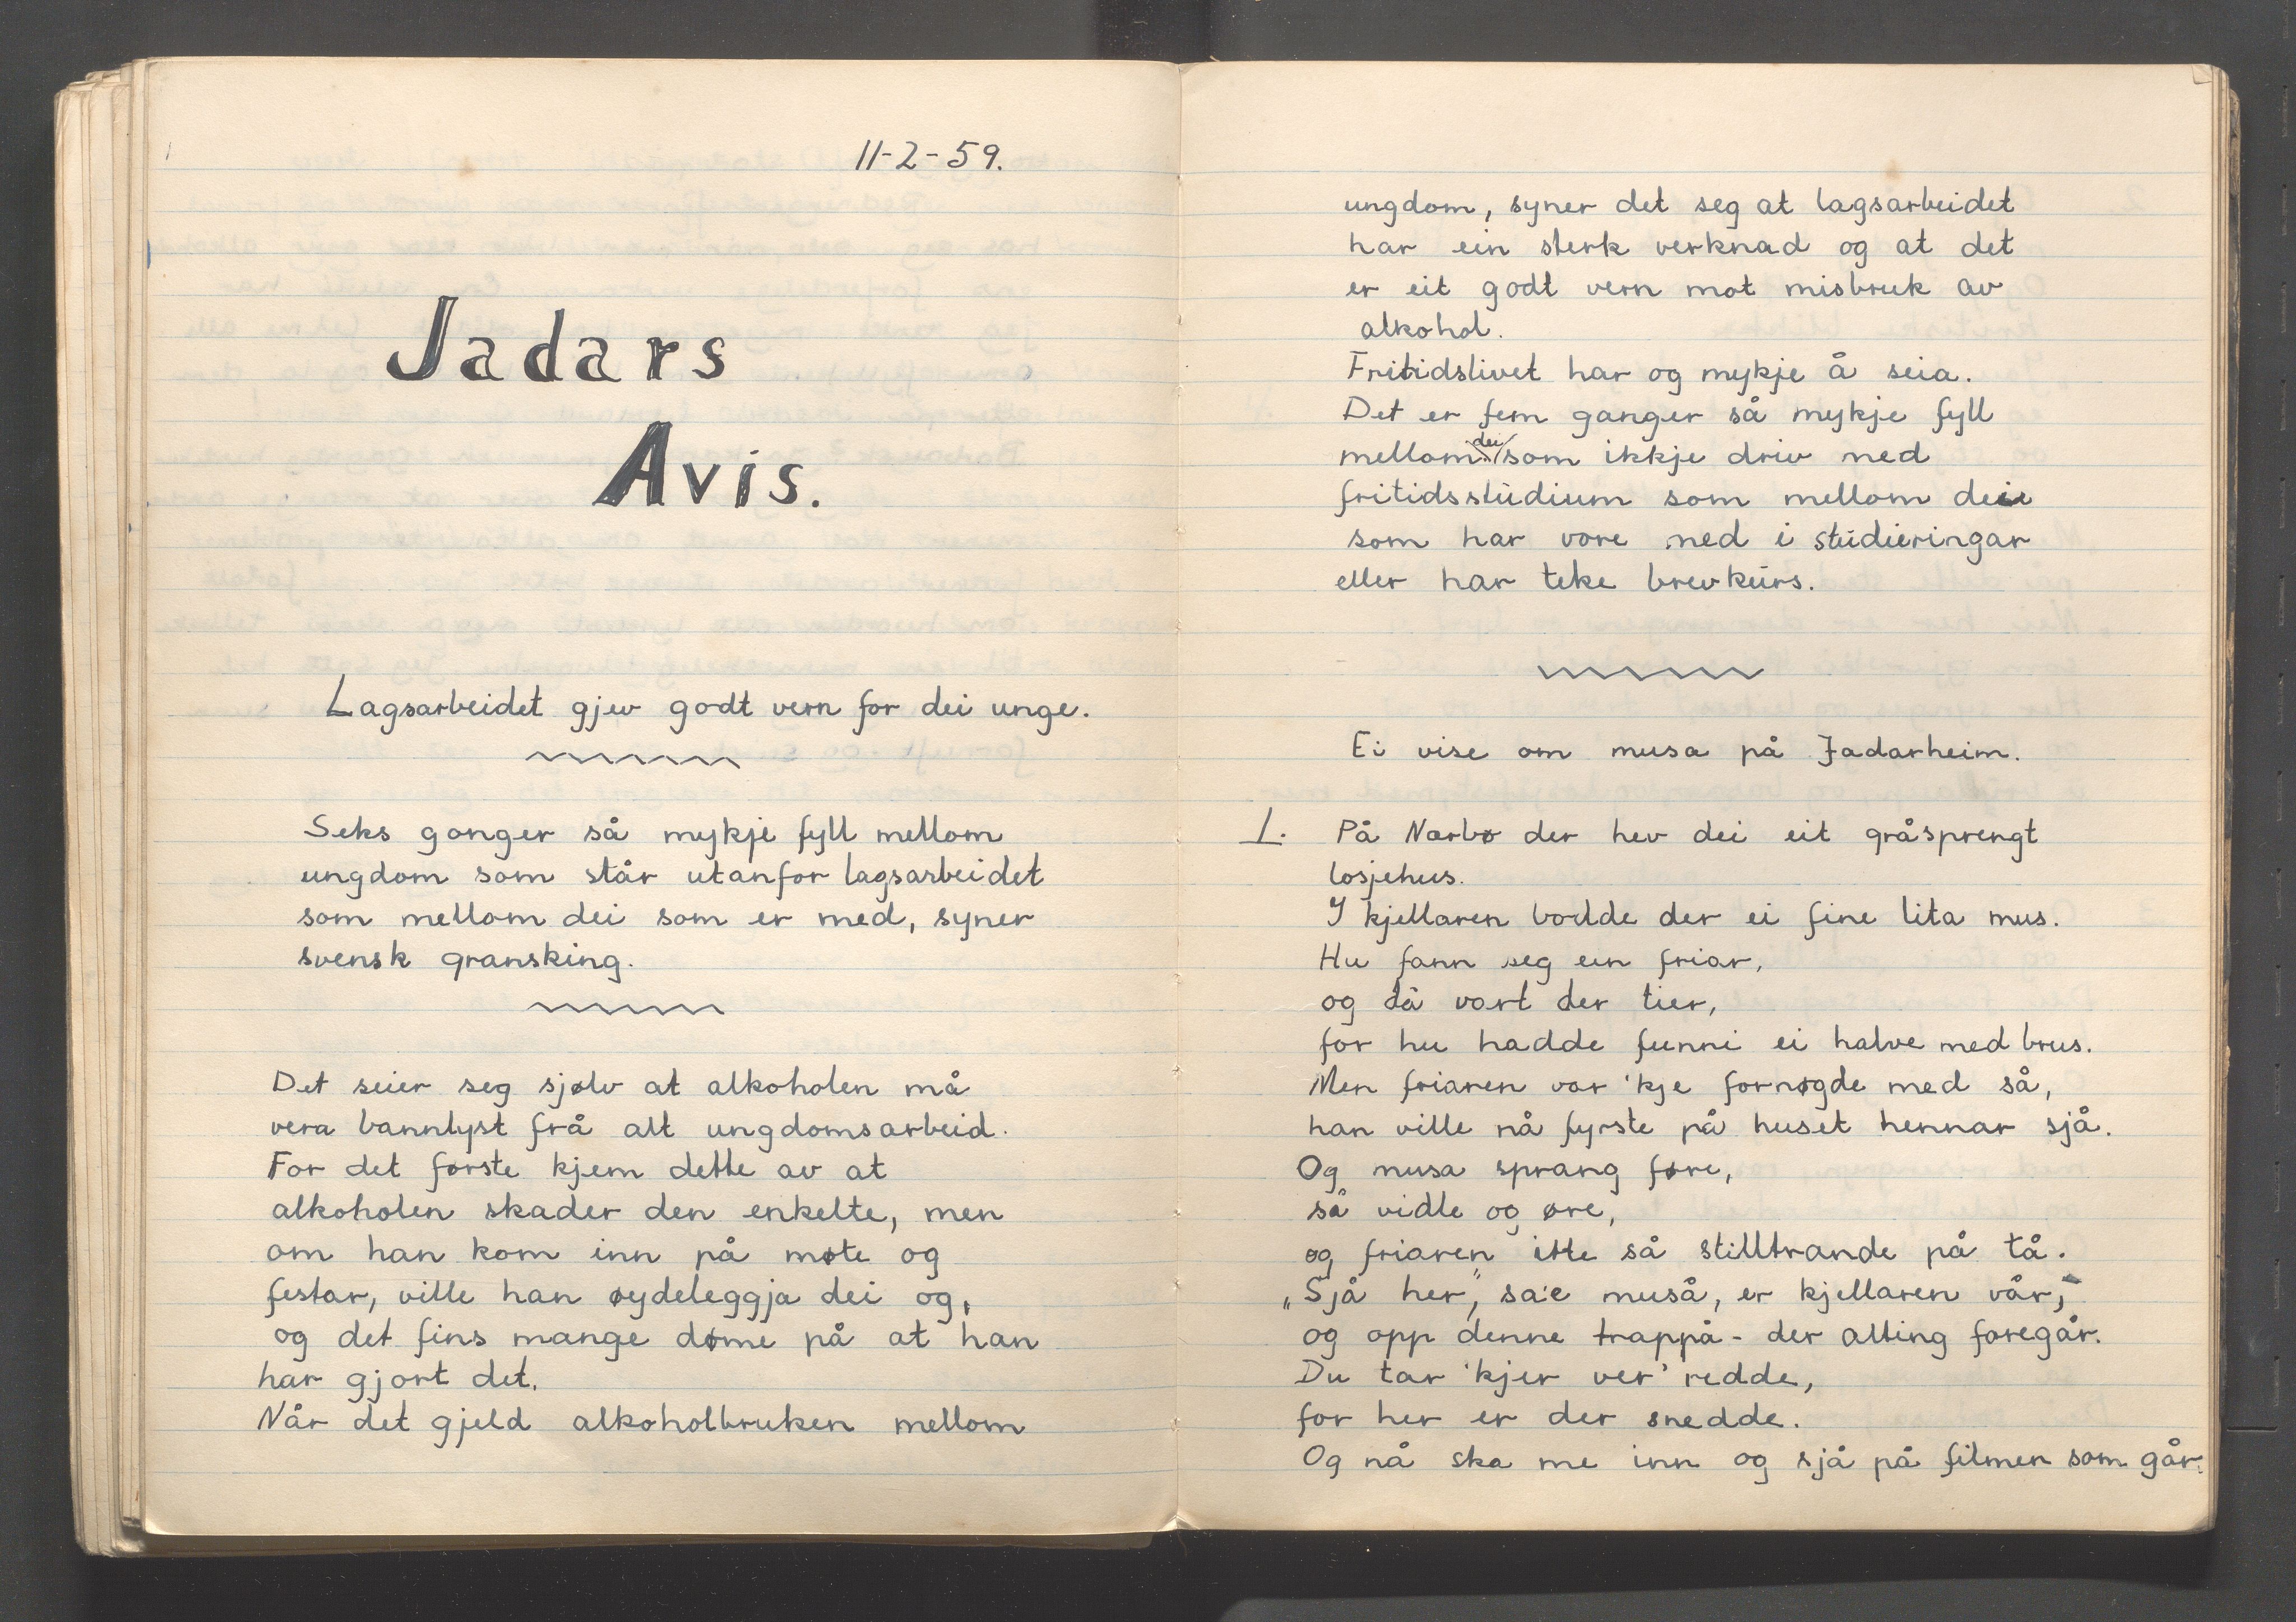 11-2-59.
Jadars
Avis.
Lagsarbeidet gjev godt vern for dei unge.
Seks gonger så mykje fyll mellom
ungdom som står utanfor lagsarbeidet
som mellom dei som er med, syner
svensk gransking.
Det seier seg sjølv at alkoholen må
vera bannlyst frå alt ungdomsarbeid.
For det første kjem dette av at
alkoholen skader den enkelte, men
om han kom inn på møte og
festar, ville han øydeleggja dei og,
og det fins mange døme på at han
har gjort det.
Når det gjeld alkoholbruken mellom
ungdom, syner det seg at lagsarbeidet
har ein sterk verknad og at det
er eit godt vern mot misbruk av
alkohol.
Fritidslivet har og mykje å seia.
Det er fem ganger så mykje fyll
mellom dei som ikkje driv med
fritidsstudium som mellom dei
som har vore med i studieringar
eller har teke brevkurs.
Ei vise om musa på Jadarheim.
1. På Nærbø der hev dei eit gråsprengt
losjehus.
I kjellaren bodde der ei fine lita mus.
Hu fann seg ein friar,
og då vart der tier,
for hu hadde funni ei halve med brus.
Men friaren var 'kje fornøgde med så,
han ville nå fyrste på huset hennar sjå.
Og musa sprang føre,
så vidle og øre,
og friaren itte så stilltrande på tå.
„Sjå her," sa'e muså, er kjellaren vår,
og opp denne trappå - der alting foregår.
Du tar 'kjer ver' redde,
for her er der snedde.
Og nå ska me inn og sjå på filmen som går.